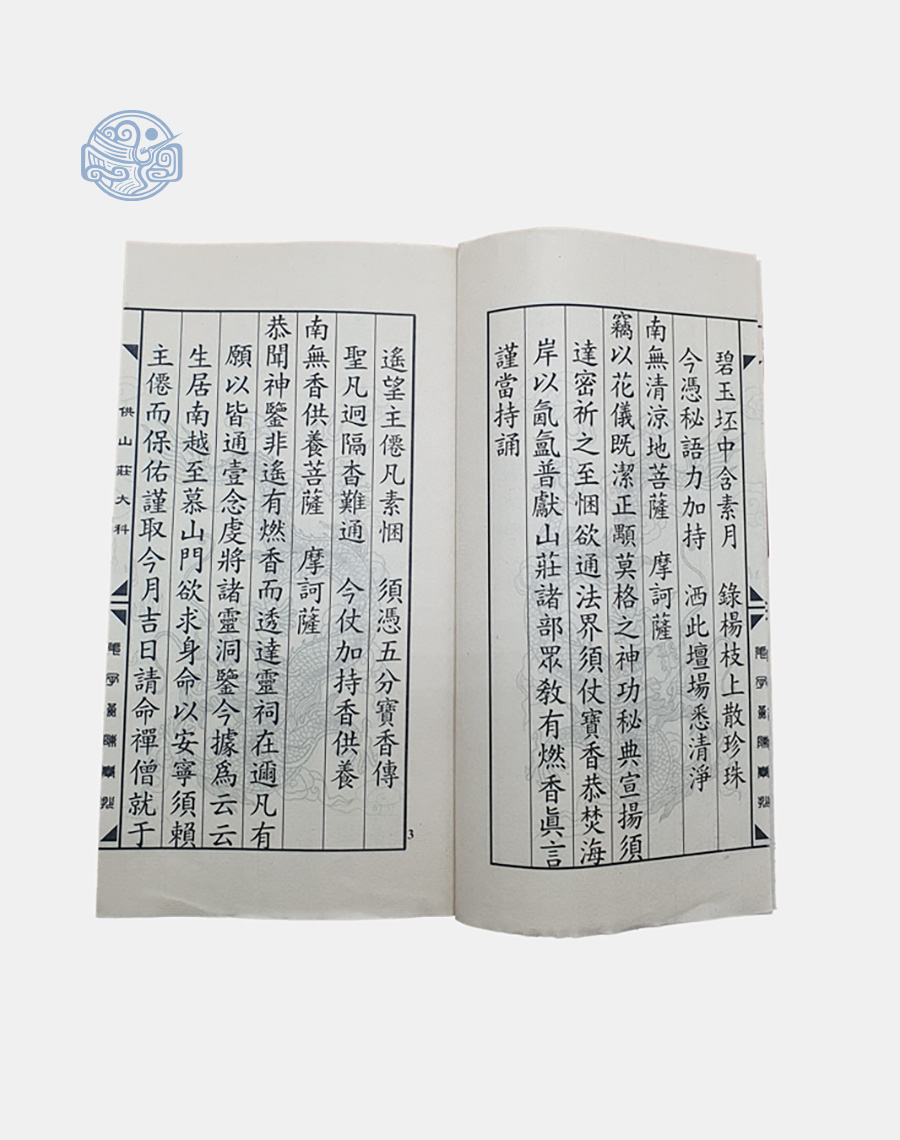 碧玉坯中含素月　錄楊枝上散珍珠
今憑秘語力加持　洒此壇場悉清淨
南無清涼地菩薩　摩訶薩
竊以花儀既潔正顒莫格之神功秘典宣揚須
達密祈之至悃欲通法界須仗寶香恭焚海
岸以氤氳普獻山莊諸部眾教有燃香眞言
謹當持誦
遙望主僊凡素悃　須憑五分寶香傳
聖凡迥隔杳難通　今仗加持香供養
南無香供養菩薩　摩訶薩
恭聞神鑒非遙有燃香而透達靈祠在邇凡有
願以皆通壹念虔將諸靈洞鑒今據爲云云
生居南越至慕山門欲求身命以安寧須賴
主僊而保佑謹取今月吉日請命禪僧就于
供山莊大科
3